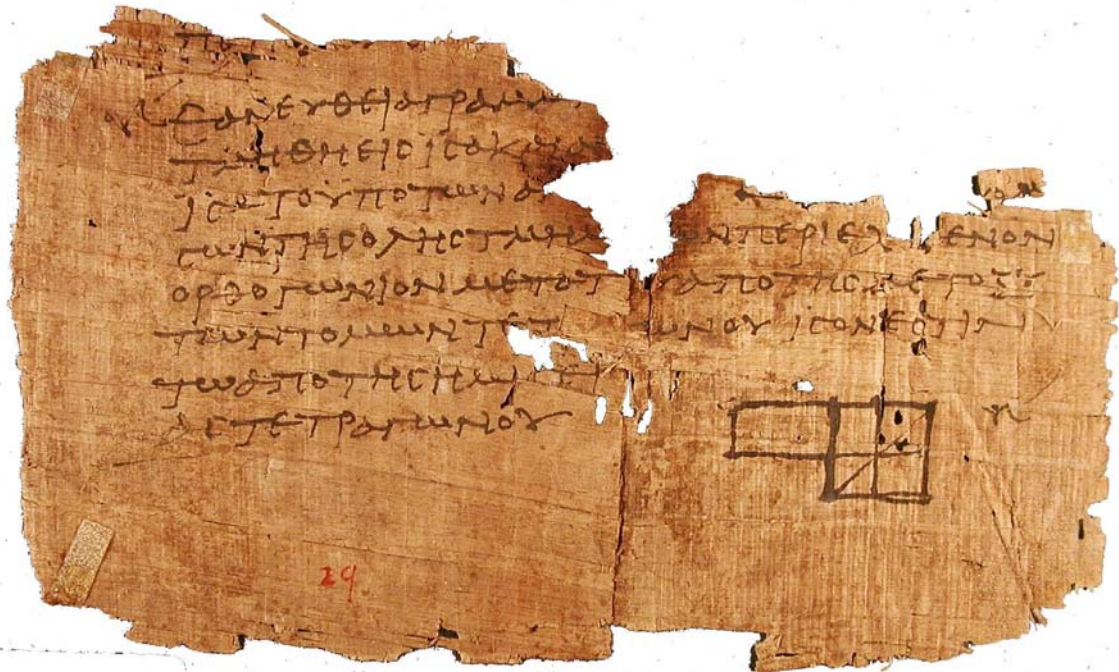 ΕΑΝ ΕΥΘΕΙΑ ΓΡΑΜΜ
ΤΜΗΘΗ ΕΙϹ ΙϹΑ ΚΑΙ Α
ΙϹΑ ΤΟ ΥΠΟ ΤΩΝ Α
ϹΩΝ ΤΗϹ ΟΛΗϹ ΤΜΗΜ ΩΝ ΠΕΡΙΕΧ ΜΕΝΟΝ
ΟΡΘΟΓΩΝΙΟΝ ΜΕΤΑ ΤΟΥ ΑΠΟ ΤΗϹ ΜΕΤΟΞΥ
ΤΩΝ ΤΟΜΩΝ ΤΕΤ ΩΝΟΥ ΙϹΟΝ ΕϹΤΙΝ
ΤΩ ΑΠΟ ΤΗϹ ΗΜΙ ΕΙ
ΑϹ ΤΕΤΡΑΓΩΝΟΥ
29